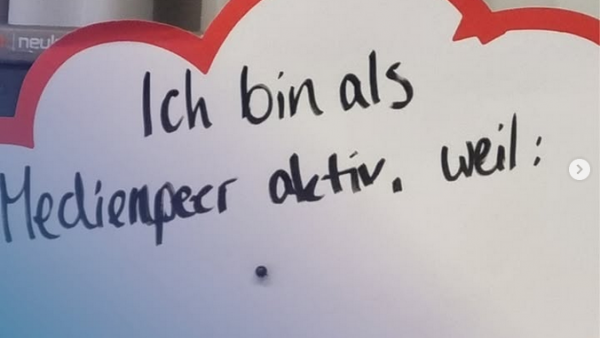 neuk
Ich bin als
Medienpeer aktiv, weil: